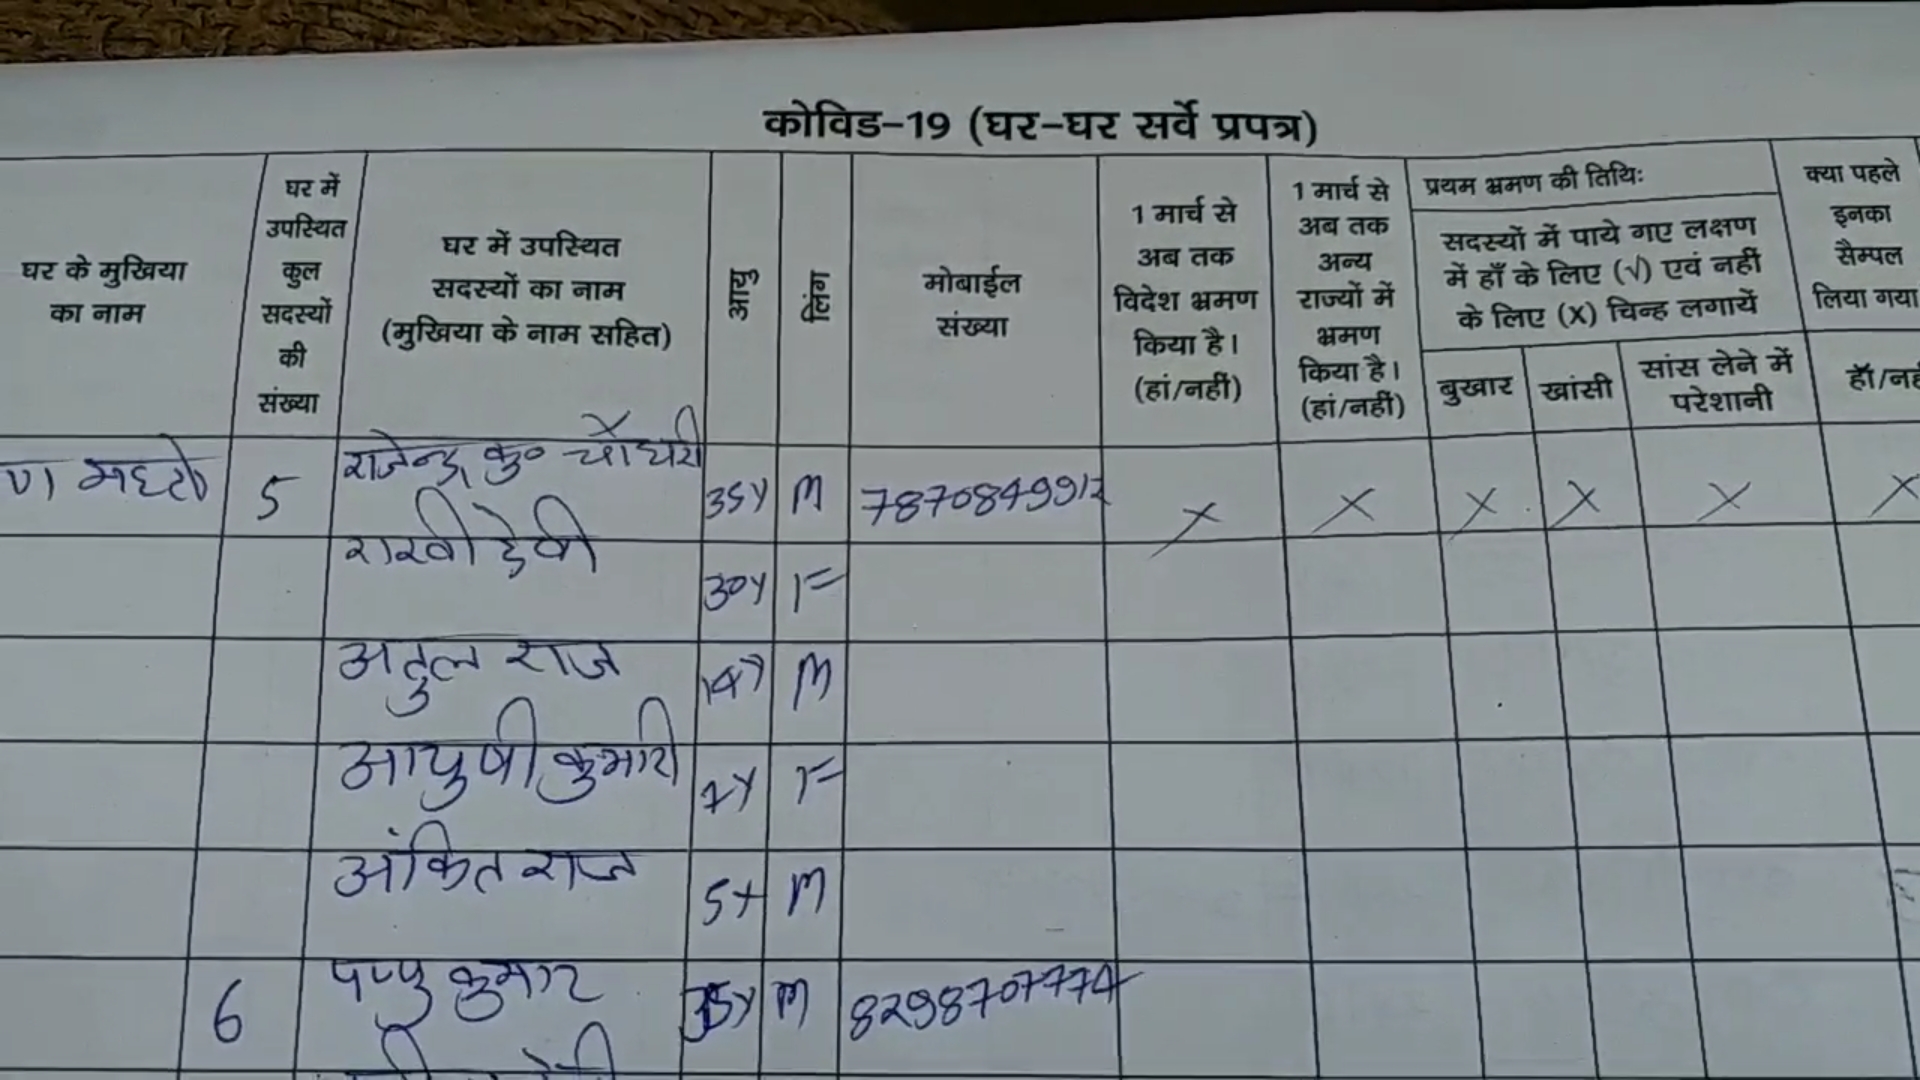 कोविड-19 (घर-घर सर्वे प्रपत्र)
घर के मुखिया
का नाम
घर में
उपस्थित
कुल
सदस्यों
की
संख्या
घर में उपस्थित
सदस्यों का नाम
(मुखिया के नाम सहित)
आयु
लिंग
मोबाईल
संख्या
1 मार्च से
अब तक
विदेश भ्रमण
किया है।
(हां/नहीं)
1 मार्च से
अब तक
अन्य
राज्यों में
भ्रमण
किया है।
(हां/नहीं)
प्रथम भ्रमण की तिथिः
सदस्यों में पाये गए लक्षण
में हाँ के लिए (√) एवं नहीं
के लिए (X) चिन्ह लगायें
बुखार
खांसी
सांस लेने में
परेशानी
क्या पहले
इनका
सैम्पल
लिया गया
हॉ/नह
महतो 5 राजेन्द्र कु० चौधरी 35Y M 787084991 X X X X X X
राखी देवी 30Y F
अतुल राज 14Y M
आयुषी कुमारी 7Y F
अंकित राज 5Y M
6 पप्पु कुमार 35Y M 8298707774